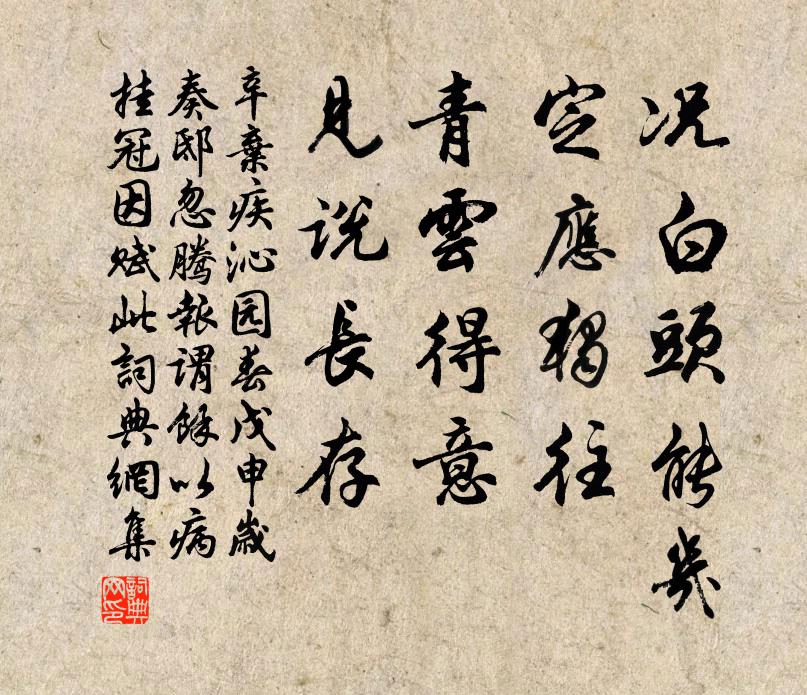 况白頭能幾
定應獨往
青雲得意
見説長存
辛棄疾沁园春戊申歲
奏邸忽騰報謂餘以病
挂冠因赋此詞典網集
詞典
网印